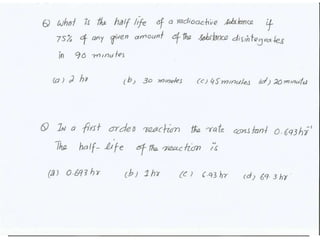 Q What is the half life of a radioactive substance if
75% of any given amount of the substance disintegrates
in 90 minutes
(a) 2 hr (b) 30 minutes (c) 45 minutes (d) 20 minutes
Q In a first order reaction the rate constant 0.693 hr⁻¹
The half-life of the reaction is
(a) 0.693 hr (b) 1 hr (c) 6.93 hr (d) 69.3 hr